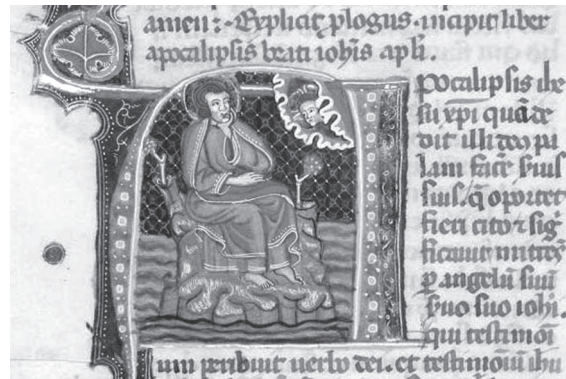 amen : Explicit plogus . incipit liber
apocalipsis beati iohis apli .
pocalipsis ihe
su xpi quā de
dit illi deus pa
lam facē seruis
suis . q̄ oportet
fieri cito ⁊ sig
ficauit mittēs
p angelū suū
seruo suo iohi .
qui testimoī
um peribuit uerbo dei . et testimoīu ihu